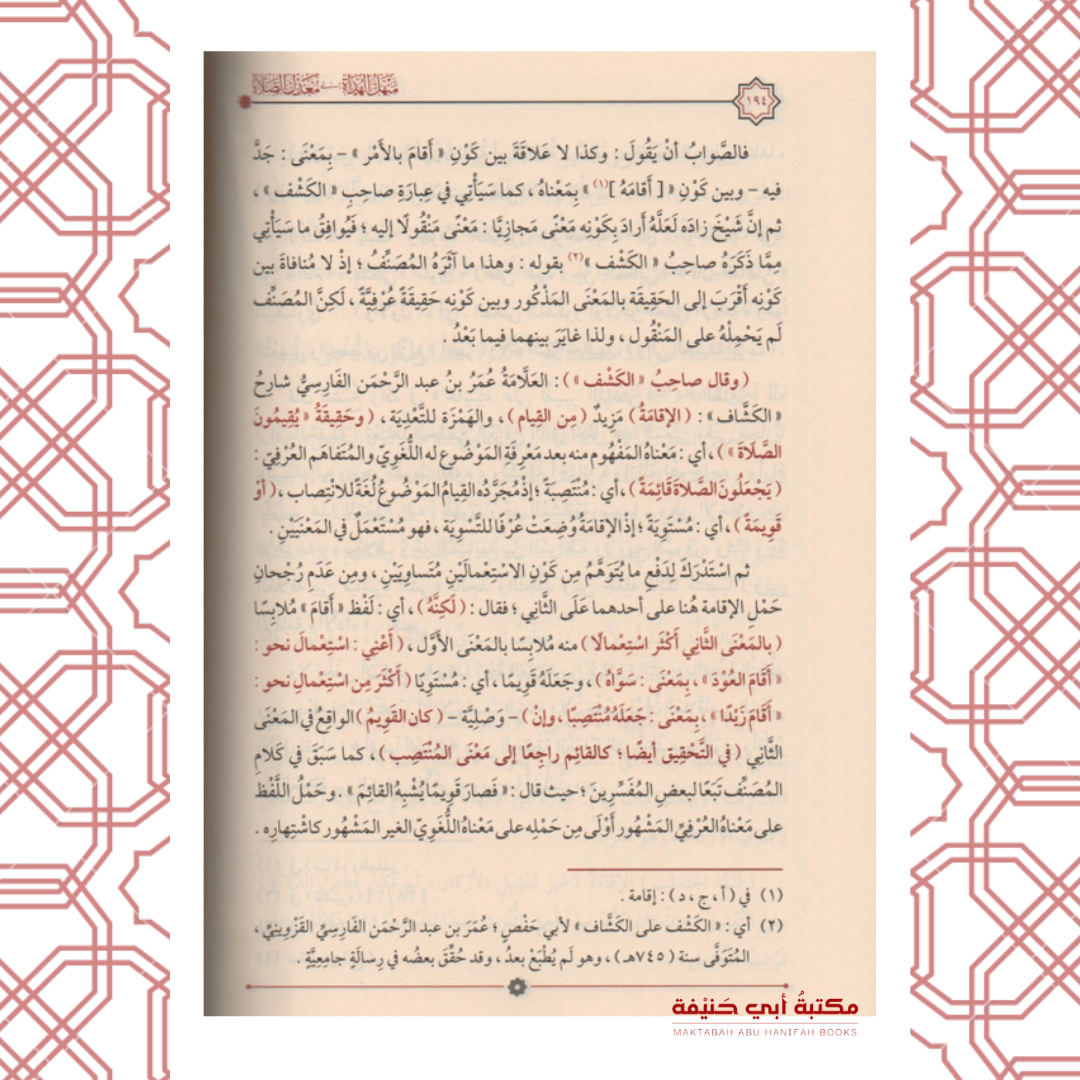 مَنْهَلُ الهُدَاةِ إلى مُعَدِّلِ الصَّلَاةِ
١٩٤
فالصَّوابُ أنْ يَقُولَ : وكذا لا عَلاقَةَ بين كَوْنِ « أَقامَ بالأَمْر » – بِمَعْنَى : جَدَّ
فيه – وبين كَوْنِ « [ أَقامَهُ ](١) » بِمَعْناهُ ، كما سَيَأْتِي في عِبارَةِ صاحِبِ « الكَشْف » ،
ثم إنَّ شَيْخَ زادَه لَعَلَّهُ أَرادَ بِكَوْنِه مَعْنًى مَجازِيًّا : مَعْنًى مَنْقُولًا إليه ؛ فَيُوافِقُ ما سَيَأْتِي
مِمَّا ذَكَرَهُ صاحِبُ « الكَشْف »(٢) بقوله : وهذا ما آثَرَهُ المُصَنِّفُ ؛ إذْ لا مُنافاةَ بين
كَوْنِه أَقْرَبَ إلى الحَقِيقَة بالمَعْنَى المَذْكُور وبين كَوْنِه حَقِيقَةً عُرْفِيَّةً ، لَكِنَّ المُصَنِّف
لَم يَحْمِلْهُ على المَنْقُول ، ولذا غايَرَ بينهما فيما بَعْدُ .
( وقال صاحِبُ « الكَشْف » ) : العَلَّامَةُ عُمَرُ بنُ عبد الرَّحْمَن الفَارِسِيُّ شارِحُ
« الكَشَّاف » : ( الإقامَةُ ) مَزِيدٌ ( مِن القِيام ) ، والهَمْزَة للتَّعْدِيَة ، ( وحَقِيقَةُ « يُقِيمُونَ
الصَّلَاةَ » ) ، أي : مَعْناهُ المَفْهُوم منه بعد مَعْرِفَةِ المَوْضُوع له اللُّغَوِيِّ والمُتَفاهَم العُرْفِيّ :
( يَجْعَلُونَ الصَّلاةَ قَائِمَةً ) ، أي : مُنْتَصِبَةً ؛ إذْ مُجَرَّدُه القِيامُ المَوْضُوعُ لُغَةً للانْتِصاب ، ( أوْ
قَوِيمَةً ) ، أي : مُسْتَوِيَةً ؛ إذ الإقامَةُ وُضِعَتْ عُرْفًا للتَّسْوِيَة ، فهو مُسْتَعْمَلٌ في المَعْنَيَيْنِ .
ثم اسْتَدْرَكَ لِدَفْعِ ما يُتَوَهَّمُ مِن كَوْنِ الاسْتِعْمالَيْنِ مُتَساوِيَيْنِ ، ومِن عَدَمِ رُجْحانِ
حَمْلِ الإقامة هُنا على أحدهما عَلَى الثَّانِي ؛ فقال : ( لَكِنَّهُ ) ، أي : لَفْظ « أَقامَ » مُلابِسًا
( بالمَعْنَى الثَّانِي أَكْثَر اسْتِعْمالًا ) منه مُلابِسًا بالمَعْنَى الأَوَّل ، ( أَعْنِي : اسْتِعْمالَ نحو :
« أَقَامَ العُوْدَ » ، بِمَعْنَى : سَوَّاهُ ) ، وجَعَلَهُ قَوِيمًا ، أي : مُسْتَوِيًا ( أَكْثَرَ مِن اسْتِعْمالِ نحو :
« أَقَامَ زَيْدًا » ، بِمَعْنَى : جَعَلَهُ مُنْتَصِبًا ، وإنْ ) – وَصْلِيَّة – ( كان القَوِيمُ ) الواقِعُ في المَعْنَى
الثَّانِي ( في التَّحْقِيق أيضًا ؛ كالقائِم راجِعًا إلى مَعْنَى المُنْتَصِب ) ، كما سَبَقَ في كَلامِ
المُصَنِّف تَبَعًا لبعضِ المُفَسِّرِينَ ؛ حيث قال : « فَصارَ قَوِيمًا يُشْبِهُ القائِمَ » . وحَمْلُ اللَّفْظ
على مَعْناهُ العُرْفِيِّ المَشْهُور أَوْلَى مِن حَمْلِه على مَعْناهُ اللُّغَوِيِّ الغير المَشْهُور كاشْتِهارِه .
(١) في ( أ ، ج ، د ) : إقامة .
(٢) أي : « الكَشْف على الكَشَّاف » لأبي حَفْصٍ ؛ عُمَرَ بن عبد الرَّحْمَن الفَارِسِيِّ القَزْوِينِيِّ ،
المُتَوَفَّى سنة ( ٧٤٥هـ ) ، وهو لَم يُطْبَعْ بعدُ ، وقد حُقِّقَ بعضُه في رِسالَةٍ جامِعِيَّةٍ .
مكتبةُ أبي حَنيْفة
MAKTABAH ABU HANIFAH BOOKS